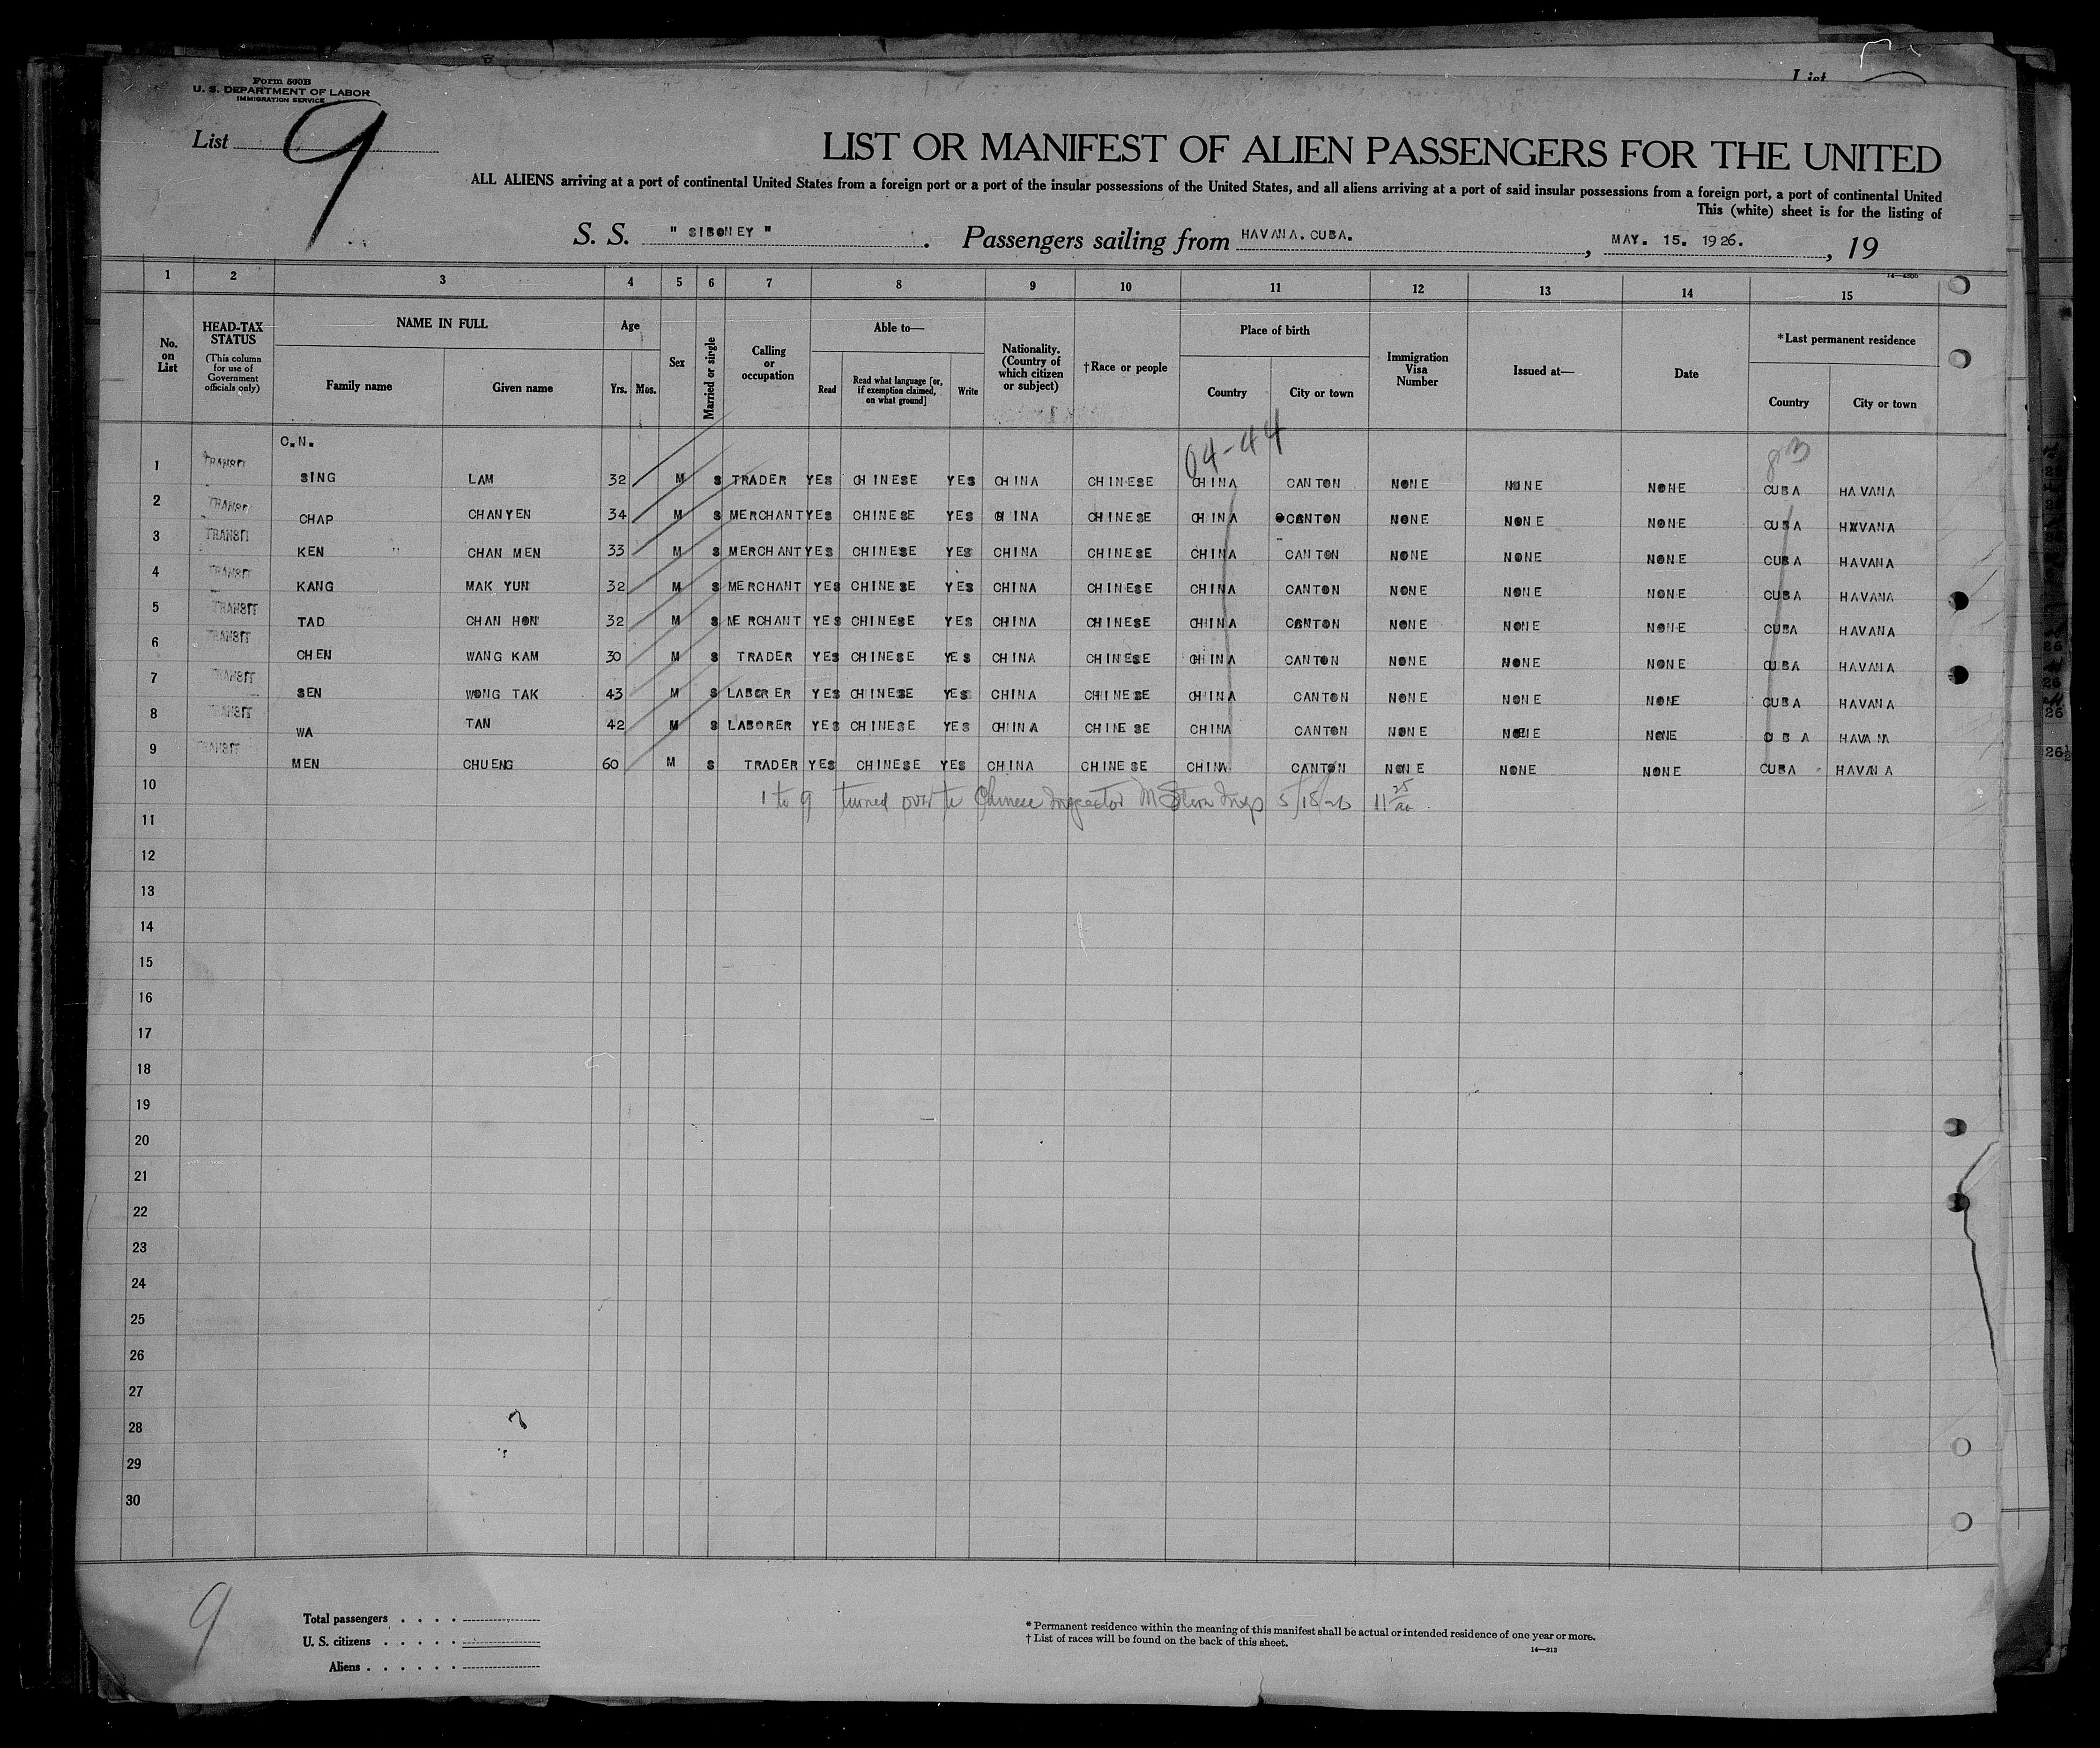 Form 500B
U. S. DEPARTMENT OF LABOR
IMMIGRATION SERVICE
List
List 9
LIST OR MANIFEST OF ALIEN PASSENGERS FOR THE UNITED
ALL ALIENS arriving at a port of continental United States from a foreign port or a port of the insular possessions of the United States, and all aliens arriving at a port of said insular possessions from a foreign port, a port of continental United
This (white) sheet is for the listing of
S. S. " SIBONEY " . Passengers sailing from HAVANA. CUBA. , MAY. 15. 1926. , 19
1 2 3 4 5 6 7 8 9 10 11 12 13 14 15
No. on List HEAD-TAX STATUS (This column for use of Government officials only) NAME IN FULL Family name Given name Age Yrs. Mos. Sex Married or single Calling or occupation Able to— Read Read what language [or, if exemption claimed, on what ground] Write Nationality. (Country of which citizen or subject) †Race or people Place of birth Country City or town Immigration Visa Number Issued at— Date *Last permanent residence Country City or town
C.N. 04-44
1 TRANSIT SING LAM 32 M S TRADER YES CHINESE YES CHINA CHINESE CHINA CANTON NONE NONE NONE CUBA HAVANA
2 TRANSIT CHAP CHANYEN 34 M S MERCHANT YES CHINESE YES CHINA CHINESE CHINA CANTON NONE NONE NONE CUBA HAVANA
3 TRANSIT KEN " CHAN MEN 33 M S MERCHANT YES CHINESE YES CHINA CHINESE CHINA CANTON NONE NONE NONE CUBA HAVANA
4 TRANSIT KANG MAK YUN 32 M S MERCHANT YES CHINESE YES CHINA CHINESE CHINA CANTON NONE NONE NONE CUBA HAVANA
5 TRANSIT TAD CHAN HON 32 M S MERCHANT YES CHINESE YES CHINA CHINESE CHINA CANTON NONE NONE NONE CUBA HAVANA
6 TRANSIT CHEN WANG KAM 30 M S TRADER YES CHINESE YES CHINA CHINESE CHINA CANTON NONE NONE NONE CUBA HAVANA
7 TRANSIT SEN WONG TAK 43 M S LABORER YES CHINESE YES CHINA CHINESE CHINA CANTON NONE NONE NONE CUBA HAVANA
8 TRANSIT WA TAN 42 M S LABORER YES CHINESE YES CHINA CHINESE CHINA CANTON NONE NONE NONE CUBA HAVANA
9 TRANSIT MEN CHUENG 60 M S TRADER YES CHINESE YES CHINA CHINESE CHINA CANTON NONE NONE NONE CUBA HAVANA
10 1 to 9 turned over to Chinese Inspector 5/18/26 11 25
11
12
13
14
15
16
17
18
19
20
21
22
23
24
25
26
27
28
29
30
9
Total passengers . . . .
U. S. citizens . . . . .
Aliens . . . . . .
* Permanent residence within the meaning of this manifest shall be actual or intended residence of one year or more.
† List of races will be found on the back of this sheet.
14—213